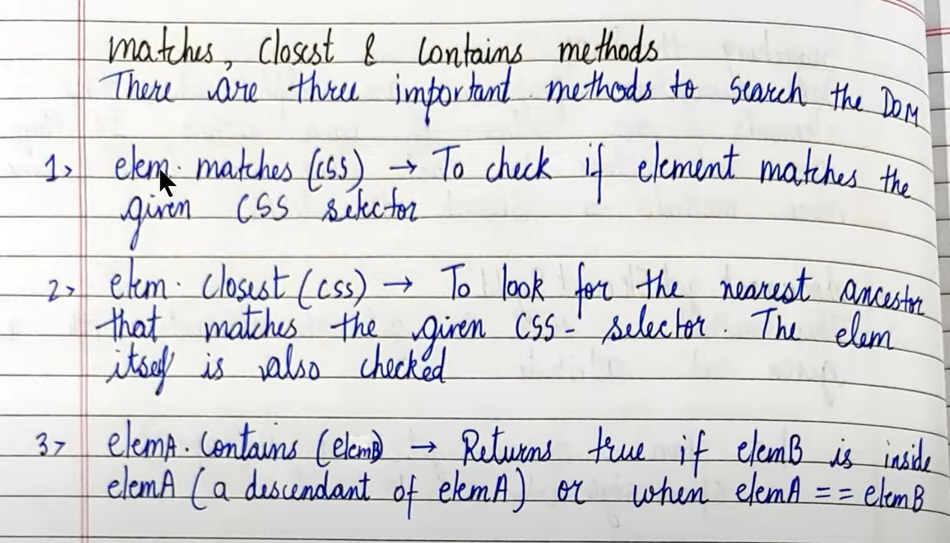 matches, closest & contains methods
There are three important methods to search the DOM
1> elem. matches (CSS) → To check if element matches the
given CSS selector
2> elem. closest (css) → To look for the nearest ancestor
that matches the given CSS- selector. The elem
itself is also checked
3> elemA. contains (elemB) → Returns true if elemB is inside
elemA (a descendant of elemA) or when elemA == elemB